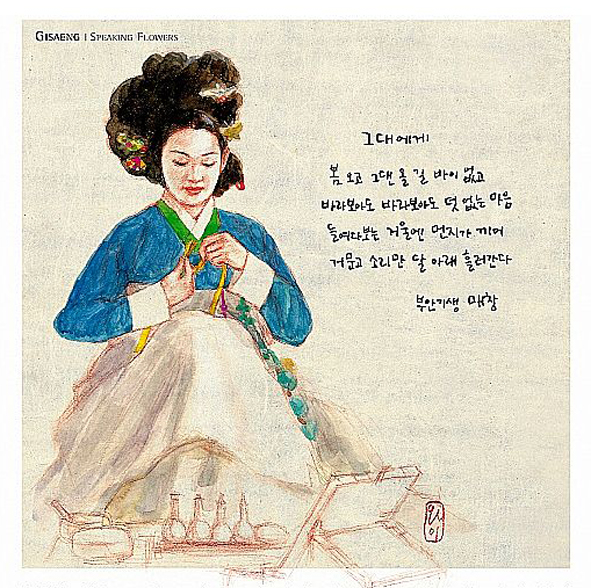 GISAENG | SPEAKING FLOWERS
그대에게
봄 오고 그댄 올 길 바이 없고
바라보아도 바라보아도 덧 없는 마음
들여다보는 거울엔 먼지가 끼어
거문고 소리만 달 아래 흘러간다
부안기생 매창